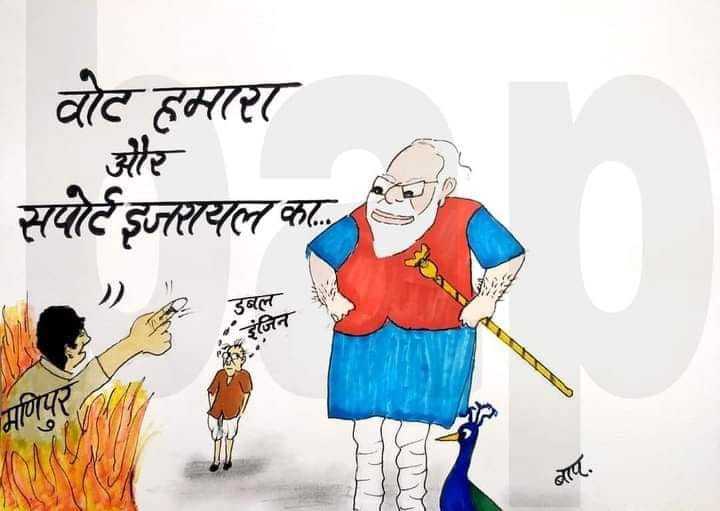 वोट हमारा
और
सपोर्ट इजरायल का...
डबल
इंजिन
मणिपुर
बाप.
bap